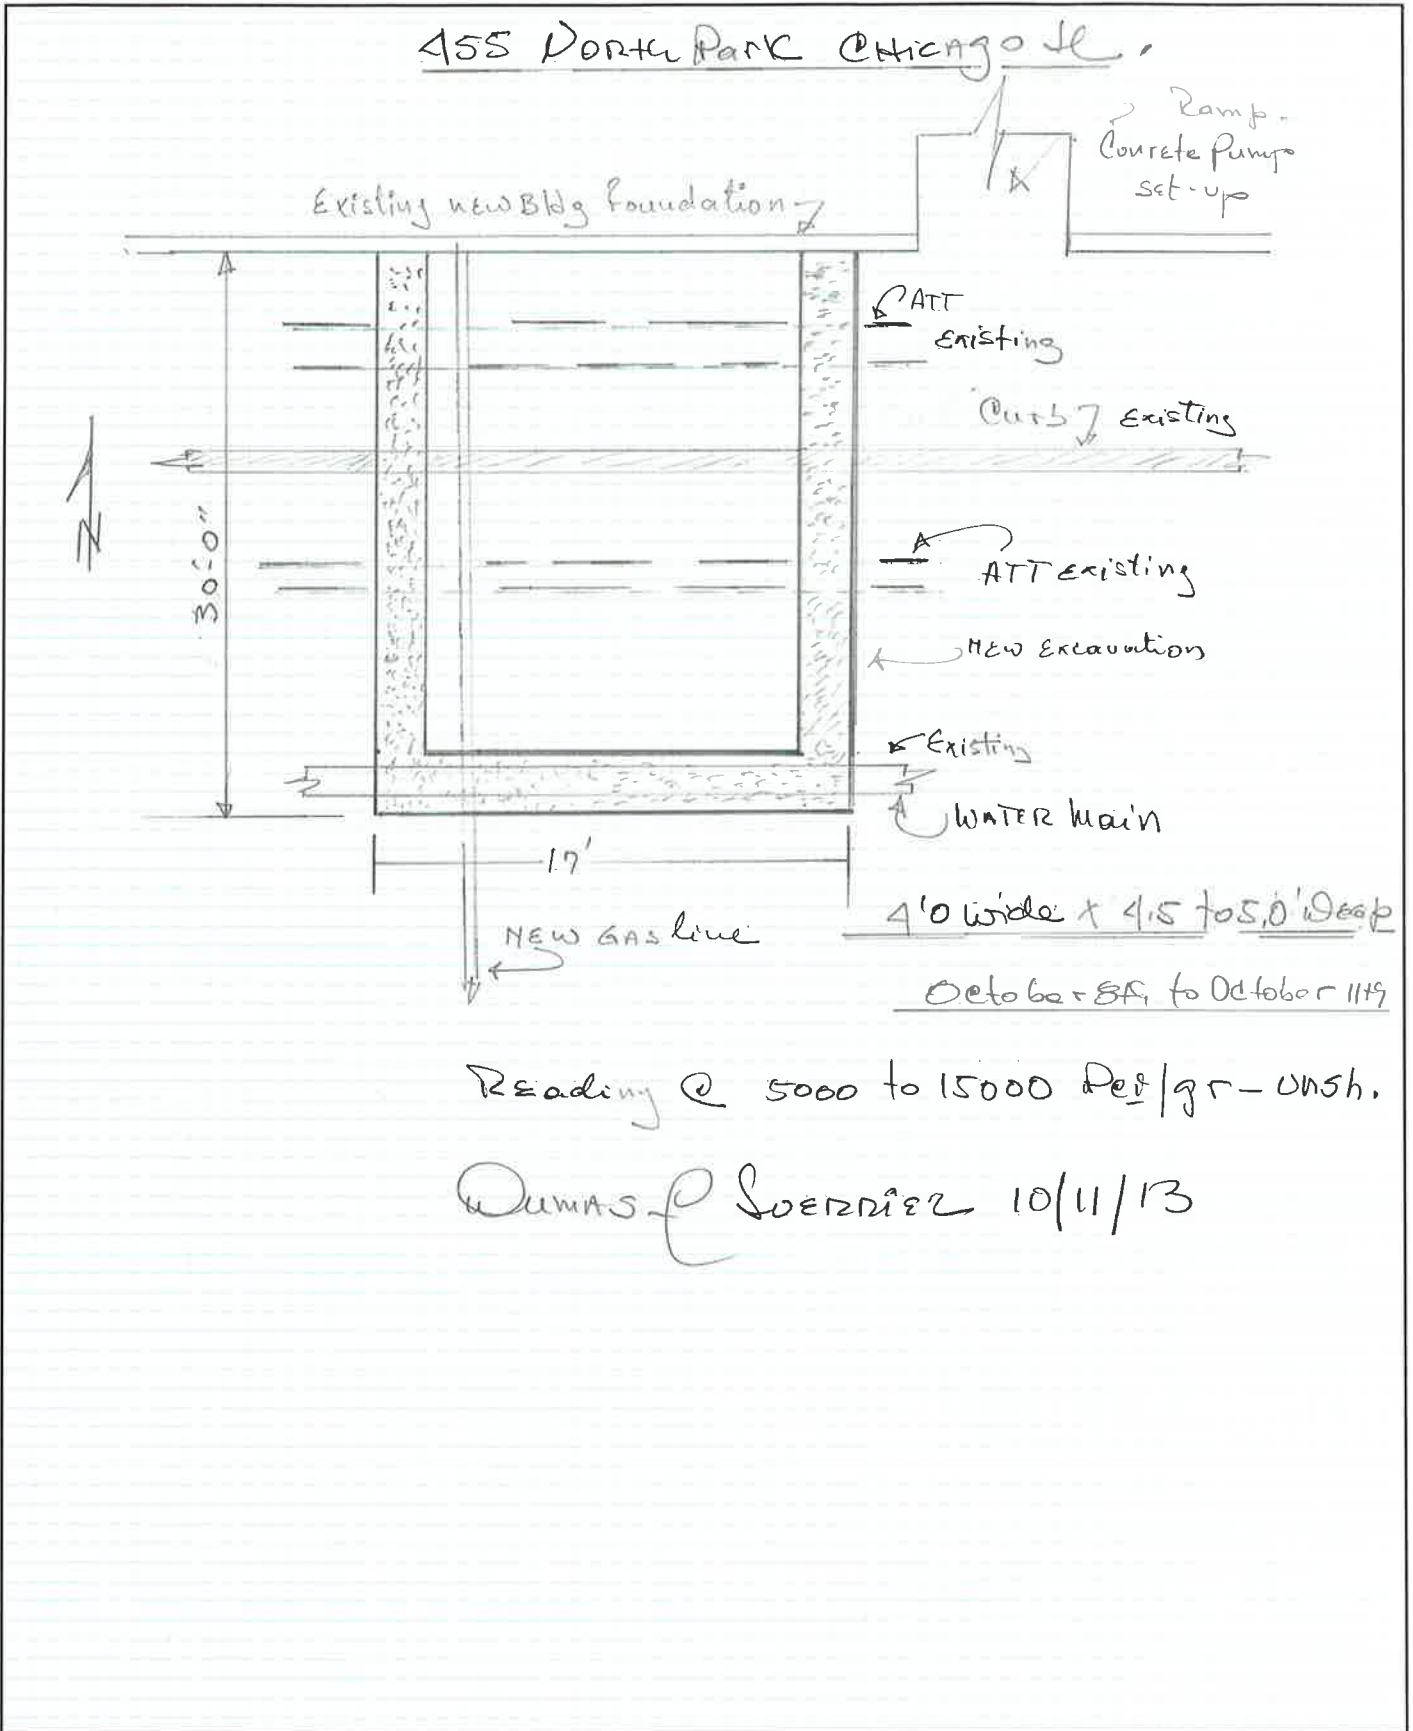 455 North Park CHicago Il.
Ramp.
Conrete Pump
set-up
Existing new Bldg Foundation
ATT
Existing
Curb Existing
N
30'-0"
ATT Existing
NEW Excavation
Existing
WATER Main
17'
4'0 wide x 4.5 to 5,0' Deep
NEW GAS line
October 8th to October 11th
Reading @ 5000 to 15000 /gr - unsh.
Dumas 10/11/13